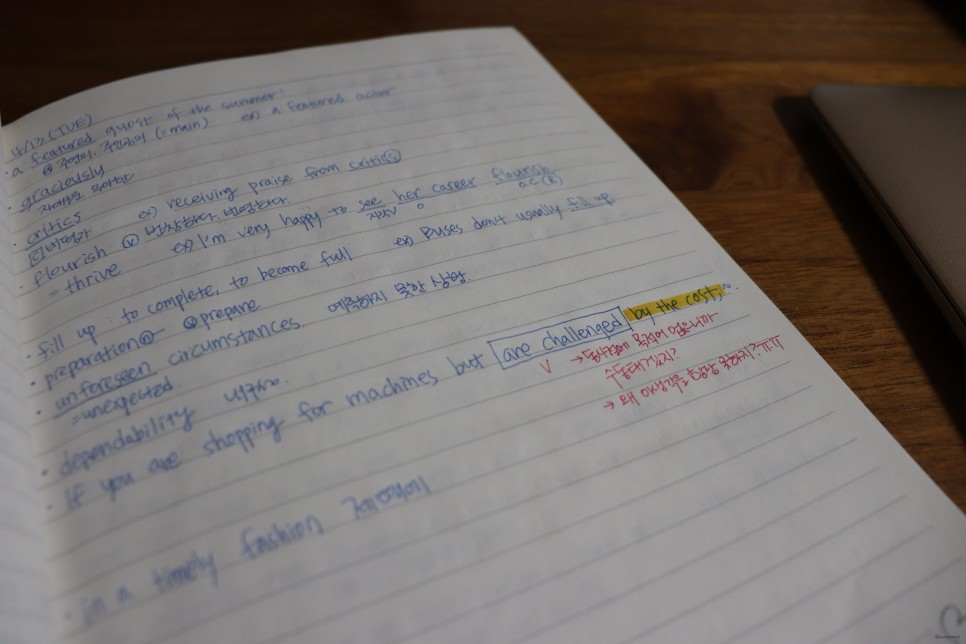 4/13 (TUE)
· a featured guest of the summer! ex) a featured actor
주인공의 (=main)
· graciously
· critics ex) receiving praise from critics
비평가
· flourish ⓥ 번창하다, 번영하다.
= thrive ex) I'm very happy to see her career flourish
지각V o o.c (R)
· fill up : to complete, to become full ex) Buses don't usually fill up
· preparation ⓝ ⓥ prepare
· unforeseen circumstances. 예측하지 못한 상황.
=unexpected
· dependability
· If you are shopping for machines but are challenged by the cost, ~
V → 동사뒤에 목적어 없으니까
수동태겠지?
→ 왜 이생각을 항상 못하지? ㅠㅠ
· in a timely fashion 제때에